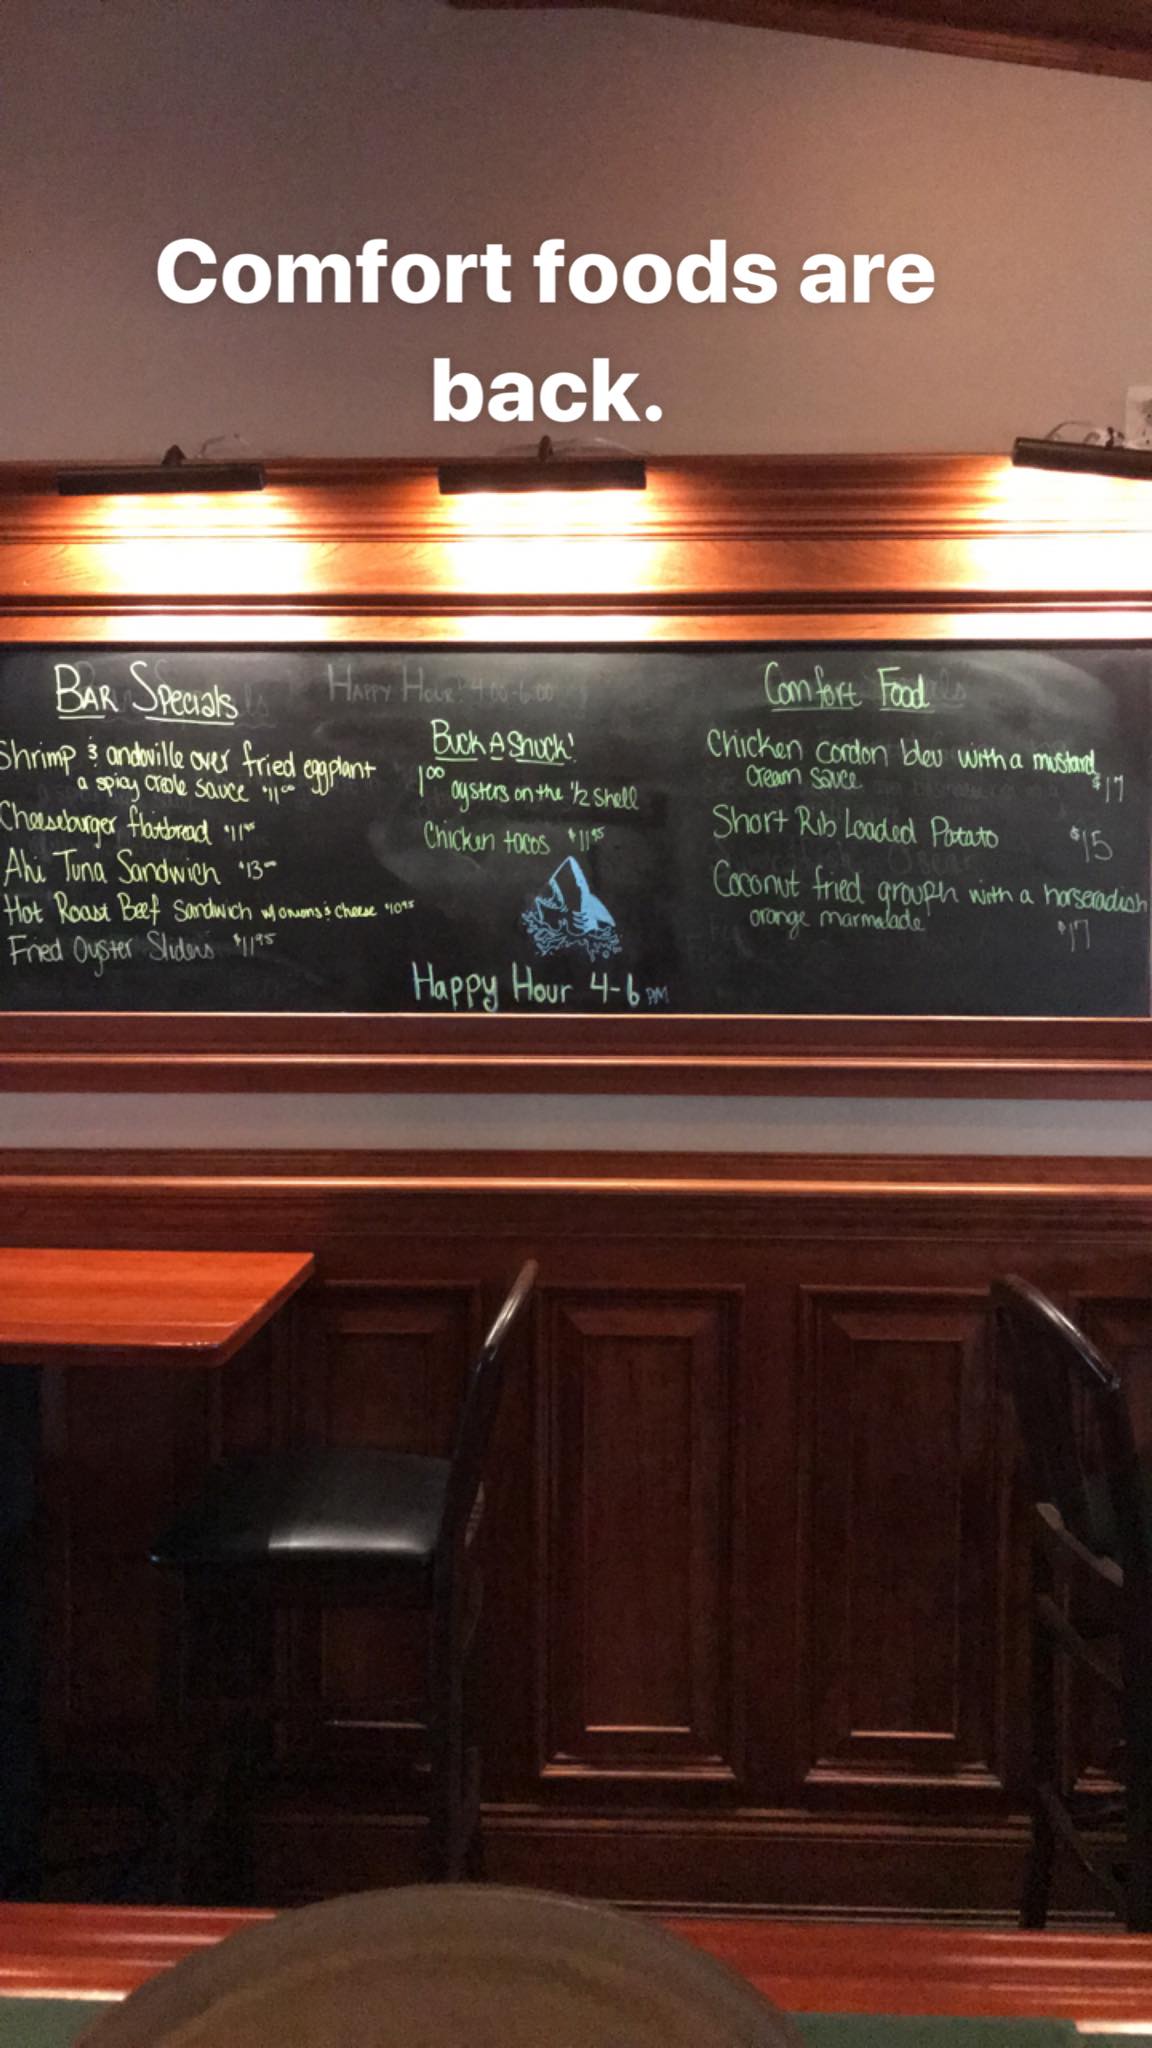 Comfort foods are
back.
BAR SPECIALS
Shrimp & andoville over fried eggplant
a spicy creole sauce $11.00
Cheeseburger flatbread $11.95
Ahi Tuna Sandwich $13.00
Hot Roast Beef Sandwich w/ onions & cheese $10.95
Fried Oyster Sliders $11.95
HAPPY HOUR! 4:00-6:00
BUCK A Shuck!
1.00 oysters on the 1/2 shell
Chicken tacos $11.95
Happy Hour 4-6 PM
Comfort Food
Chicken cordon bleu with a mustard
cream sauce $17
Short Rib Loaded Potato $15
Coconut fried with a horseradish
orange marmalade $17